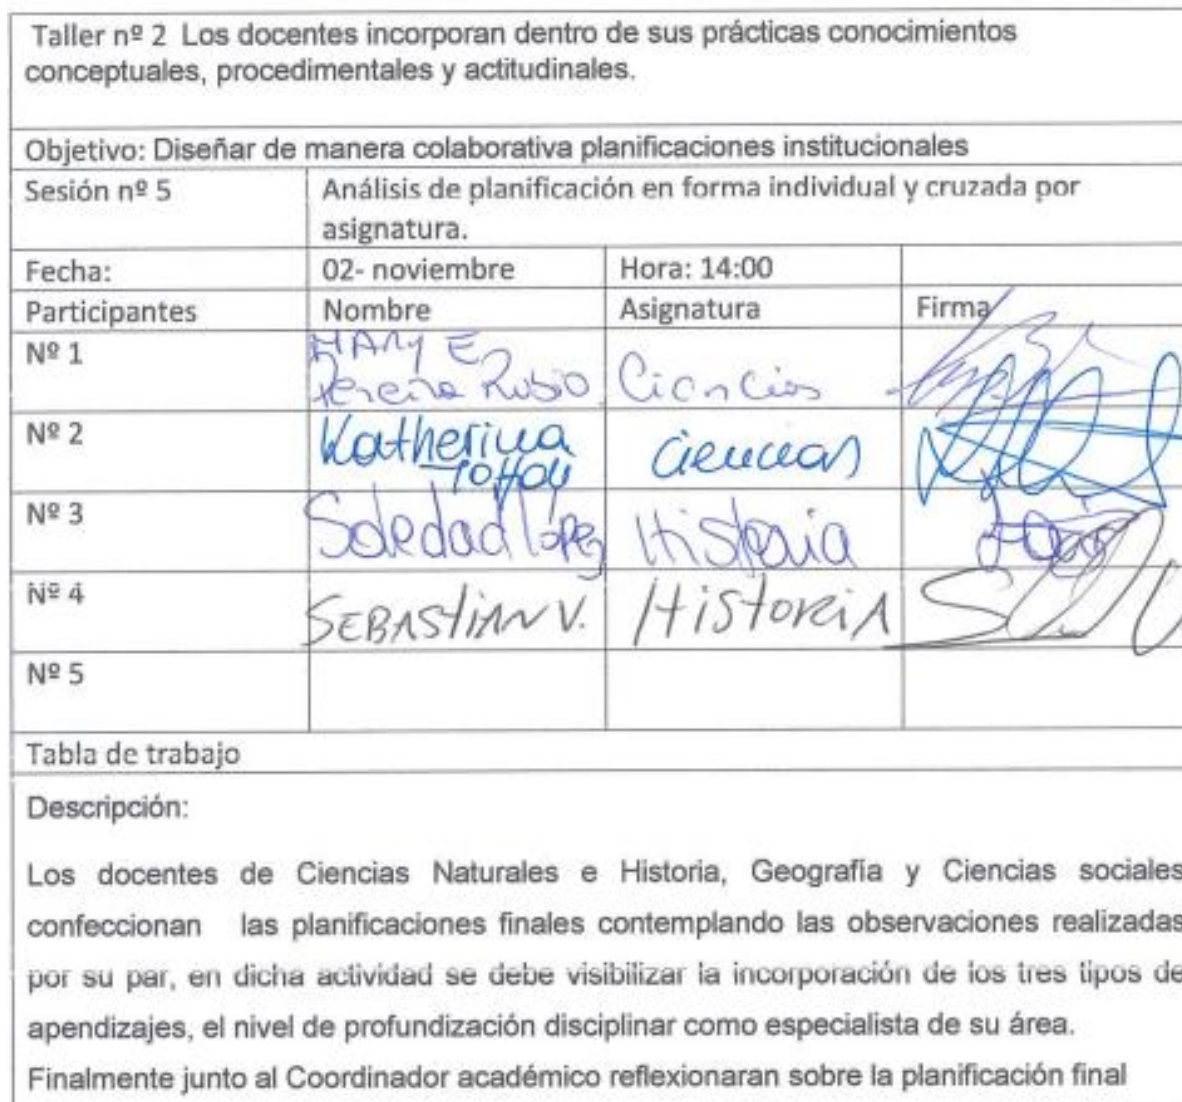 Taller nº 2 Los docentes incorporan dentro de sus prácticas conocimientos
conceptuales, procedimentales y actitudinales.
Objetivo: Diseñar de manera colaborativa planificaciones institucionales
Sesión nº 5 Análisis de planificación en forma individual y cruzada por
asignatura.
Fecha: 02- noviembre Hora: 14:00
Participantes Nombre Asignatura Firma
Nº 1 MARY E. Rubio Ciencias
Nº 2 Katherina Ciencias
Nº 3 Soledad López Historia
Nº 4 SEBASTIAN V. HistoriA
Nº 5
Tabla de trabajo
Descripción:
Los docentes de Ciencias Naturales e Historia, Geografía y Ciencias sociales
confeccionan las planificaciones finales contemplando las observaciones realizadas
por su par, en dicha actividad se debe visibilizar la incorporación de los tres tipos de
apendizajes, el nivel de profundización disciplinar como especialista de su área.
Finalmente junto al Coordinador académico reflexionaran sobre la planificación final